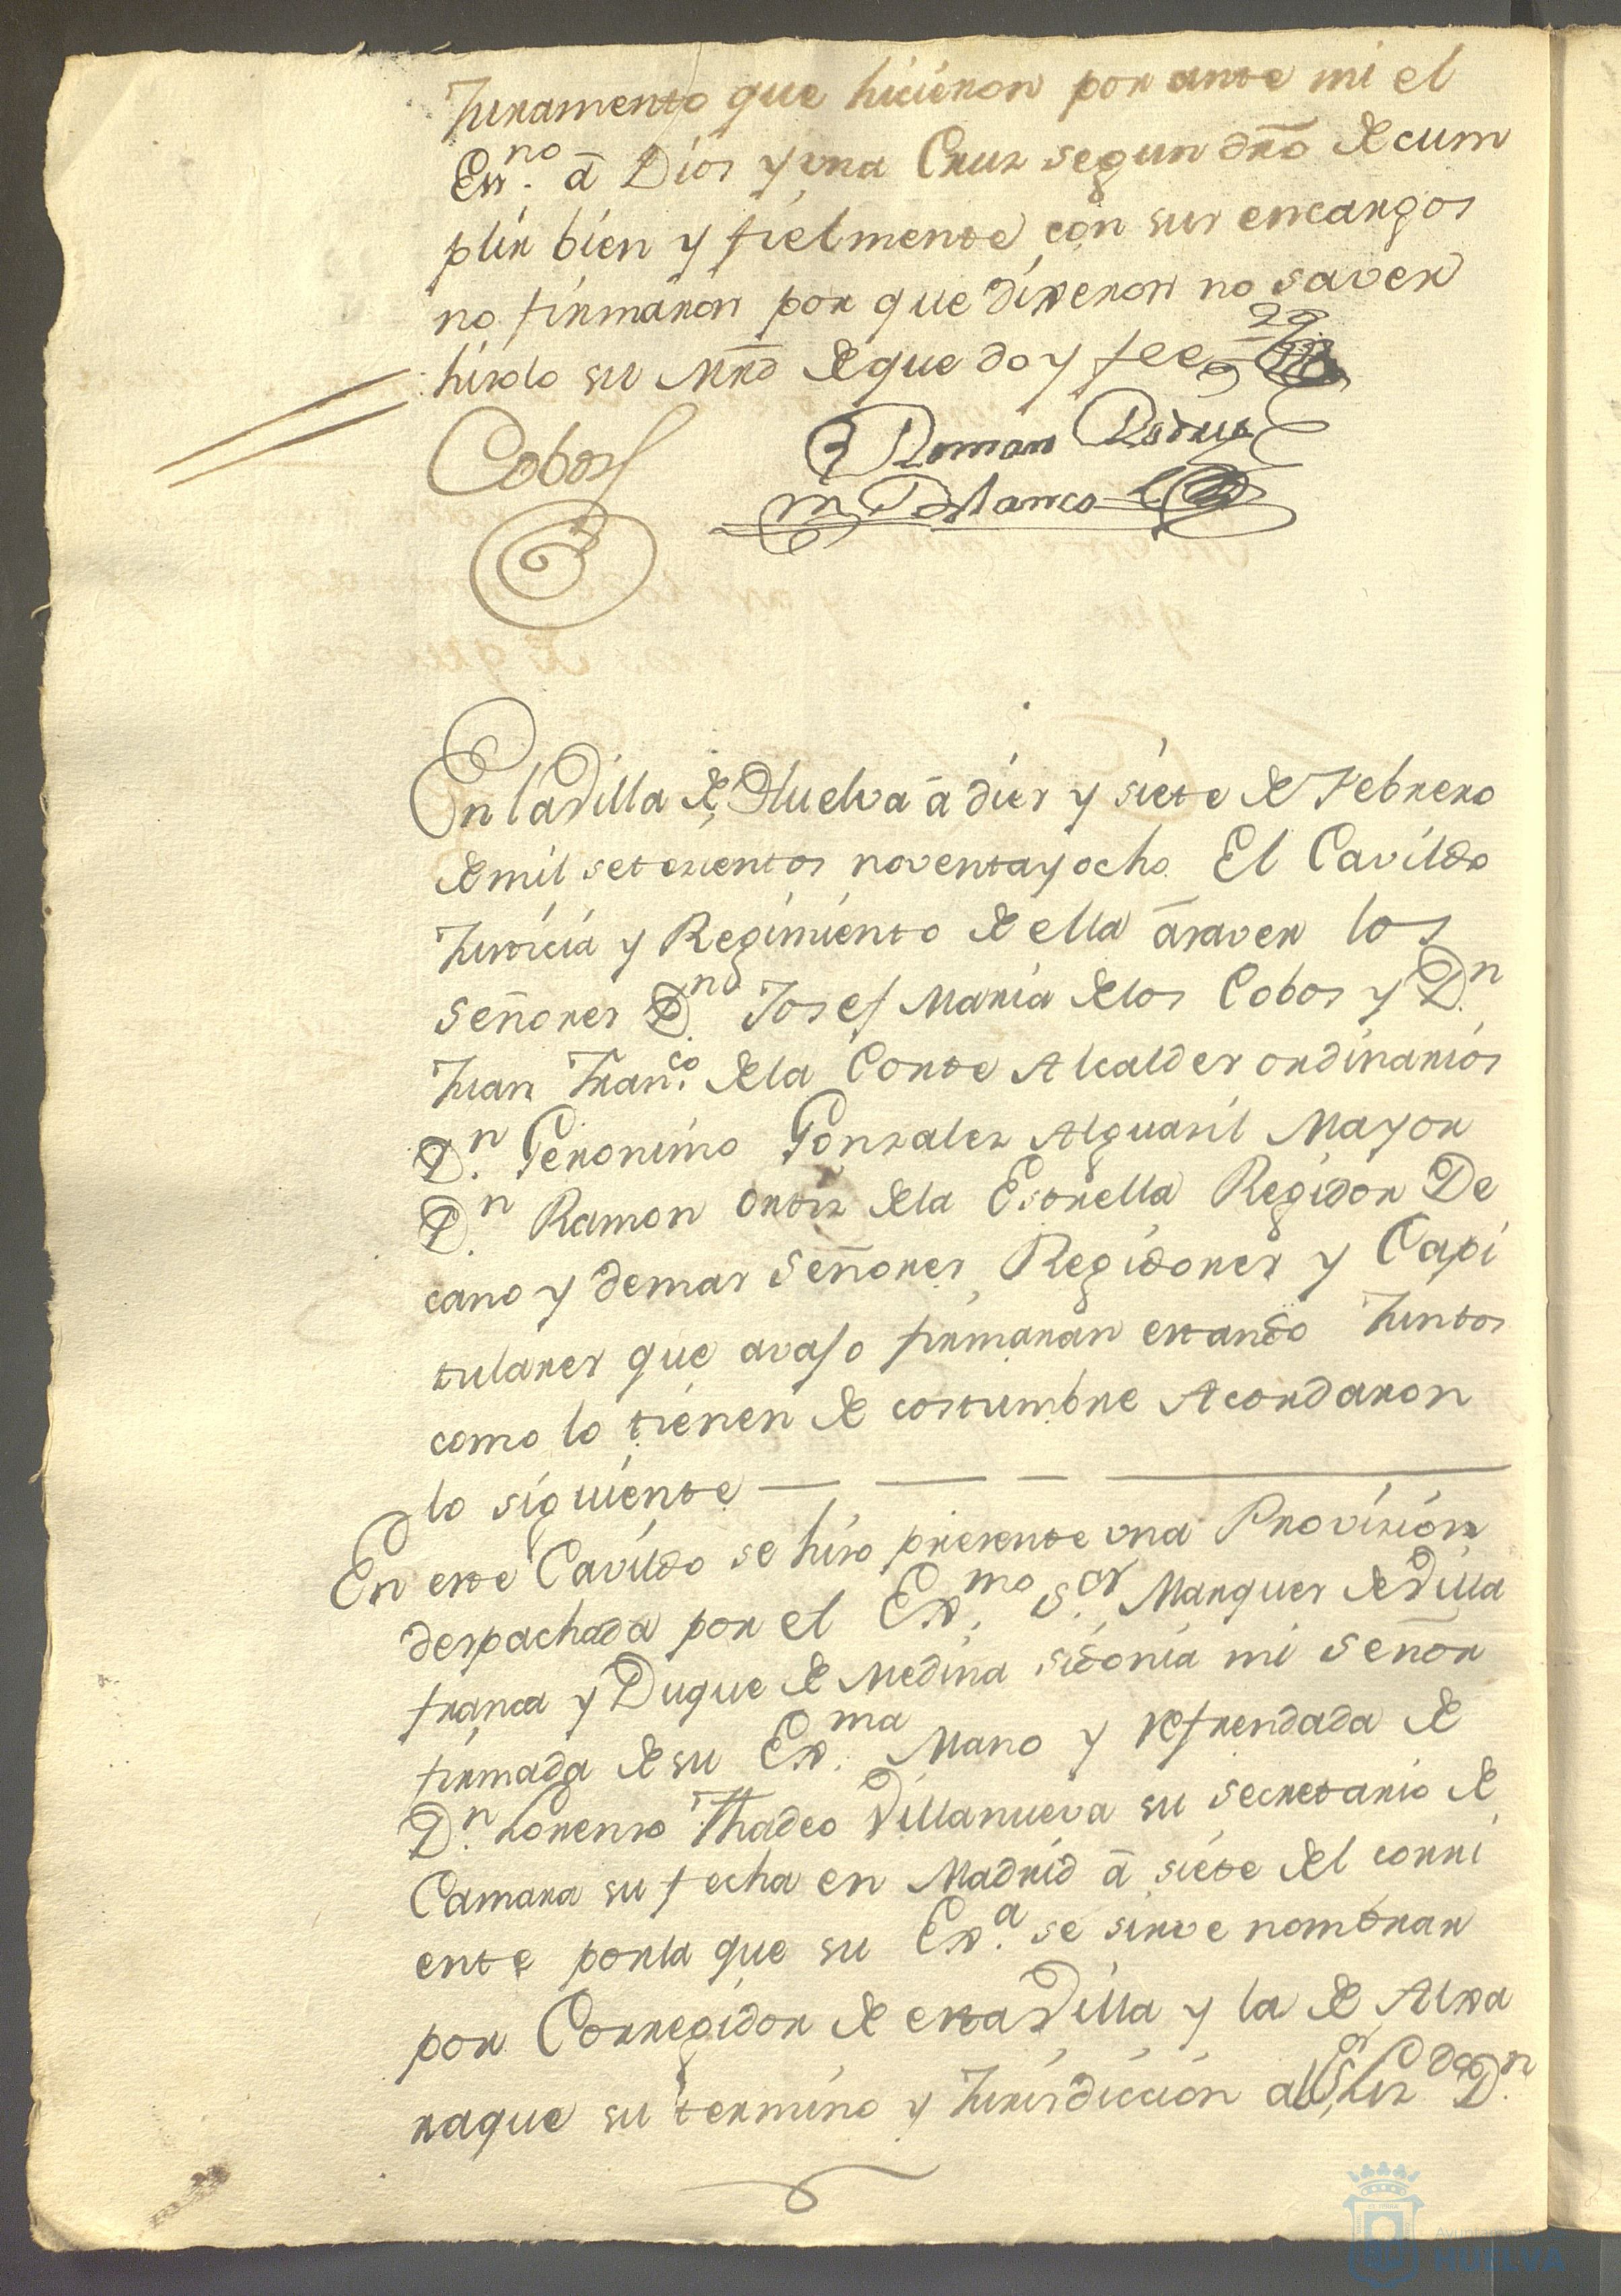 Juramento que hicieron por ante mi el
Essno. â Dios y una Cruz segun dro de cum
plir bien y fielmente con sus encargos
no firmaron por que dixeron no saver
hizolo su Mrd de que doy fee
Cobos
Roman Rodrig
Cn la Villa de Huelva â dies y siete de Febrero
de mil setecientos noventa y ocho El Cavildo
Justicia y Regimiento de ella âsaver los
Señores Dn. Josef Maria de los Cobos y Dn.
Juan Franco. de la Corte Alcaldes ordinarios
Dn. Geronimo Gonzalez Alguasil Mayor
Dn. Ramon Ortiz de la Estrella Regidor De
cano y demas Señores Regidores y Capi
tulares que avajo firmaran estando Juntos
como lo tienen de costumbre Acordaron
lo siguiente
En este Cavildo se hiso presente una Provision
despachada por el Exmo. Sor. Marques de Villa
franca y Duque de Medina Sidonia mi Señor
firmada de su Exma. Mano y refrendada de
Dn. Lorenso Thadeo Villanueva su secretario de
Camara su fecha en Madrid â siete del corri
ente por la que su Exa. se sirve nombrar
por Corregidor de esta Villa y la de Alxa
raque su termino y Jurisdiccion al Sor. Lizdo Dn.
Ayuntamiento
HUELVA